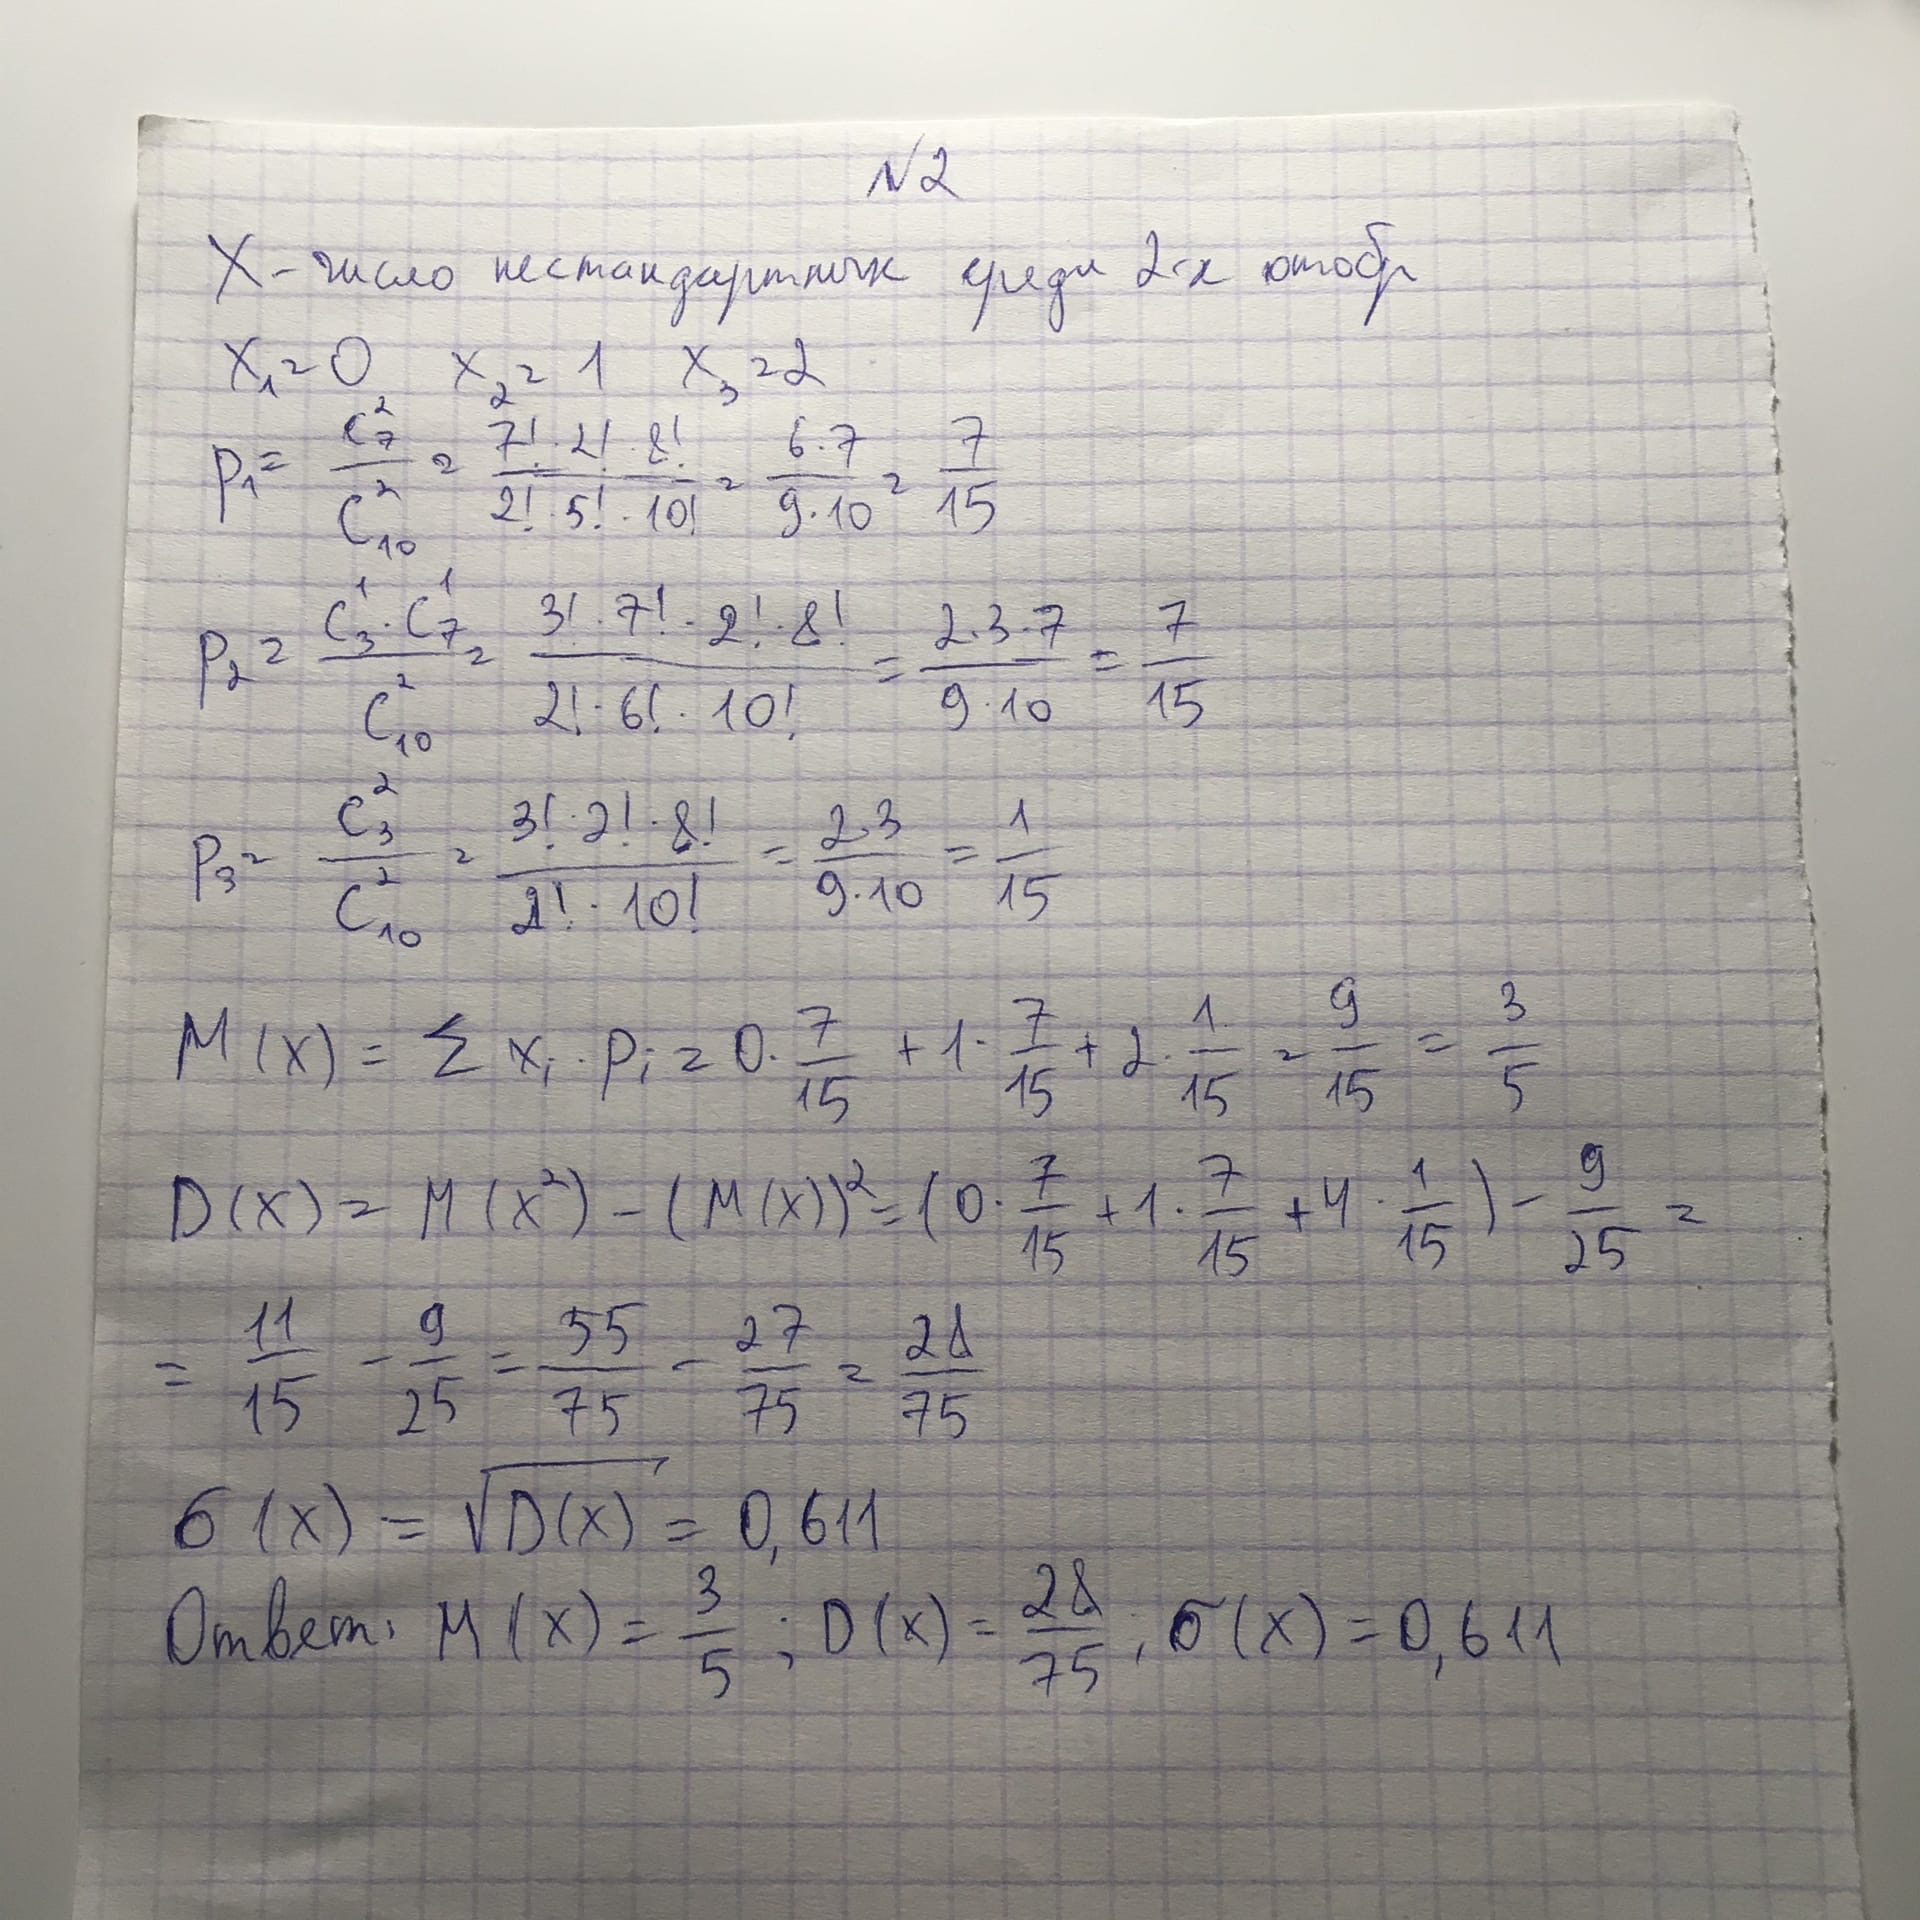 N2
X - число нестандартных среди 2-х отобр
x₁ = 0 x₂ = 1 x₃ = 2
p₁ = C₇² / C₁₀² = 7! · 2! · 8! / 2! · 5! · 10! = 6·7 / 9·10 = 7/15
p₂ = C₃¹ · C₇¹ / C₁₀² = 3! · 7! · 2! · 8! / 2! · 6! · 10! = 2·3·7 / 9·10 = 7/15
p₃ = C₃² / C₁₀² = 3! · 2! · 8! / 2! · 10! = 2·3 / 9·10 = 1/15
M(X) = Σ xᵢ · pᵢ = 0 · 7/15 + 1 · 7/15 + 2 · 1/15 = 9/15 = 3/5
D(X) = M(X²) - (M(X))² = (0 · 7/15 + 1 · 7/15 + 4 · 1/15) - 9/25 =
= 11/15 - 9/25 = 55/75 - 27/75 = 28/75
σ(X) = √D(X) = 0,611
Ответ: M(X) = 3/5 ; D(X) = 28/75 ; σ(X) = 0,611